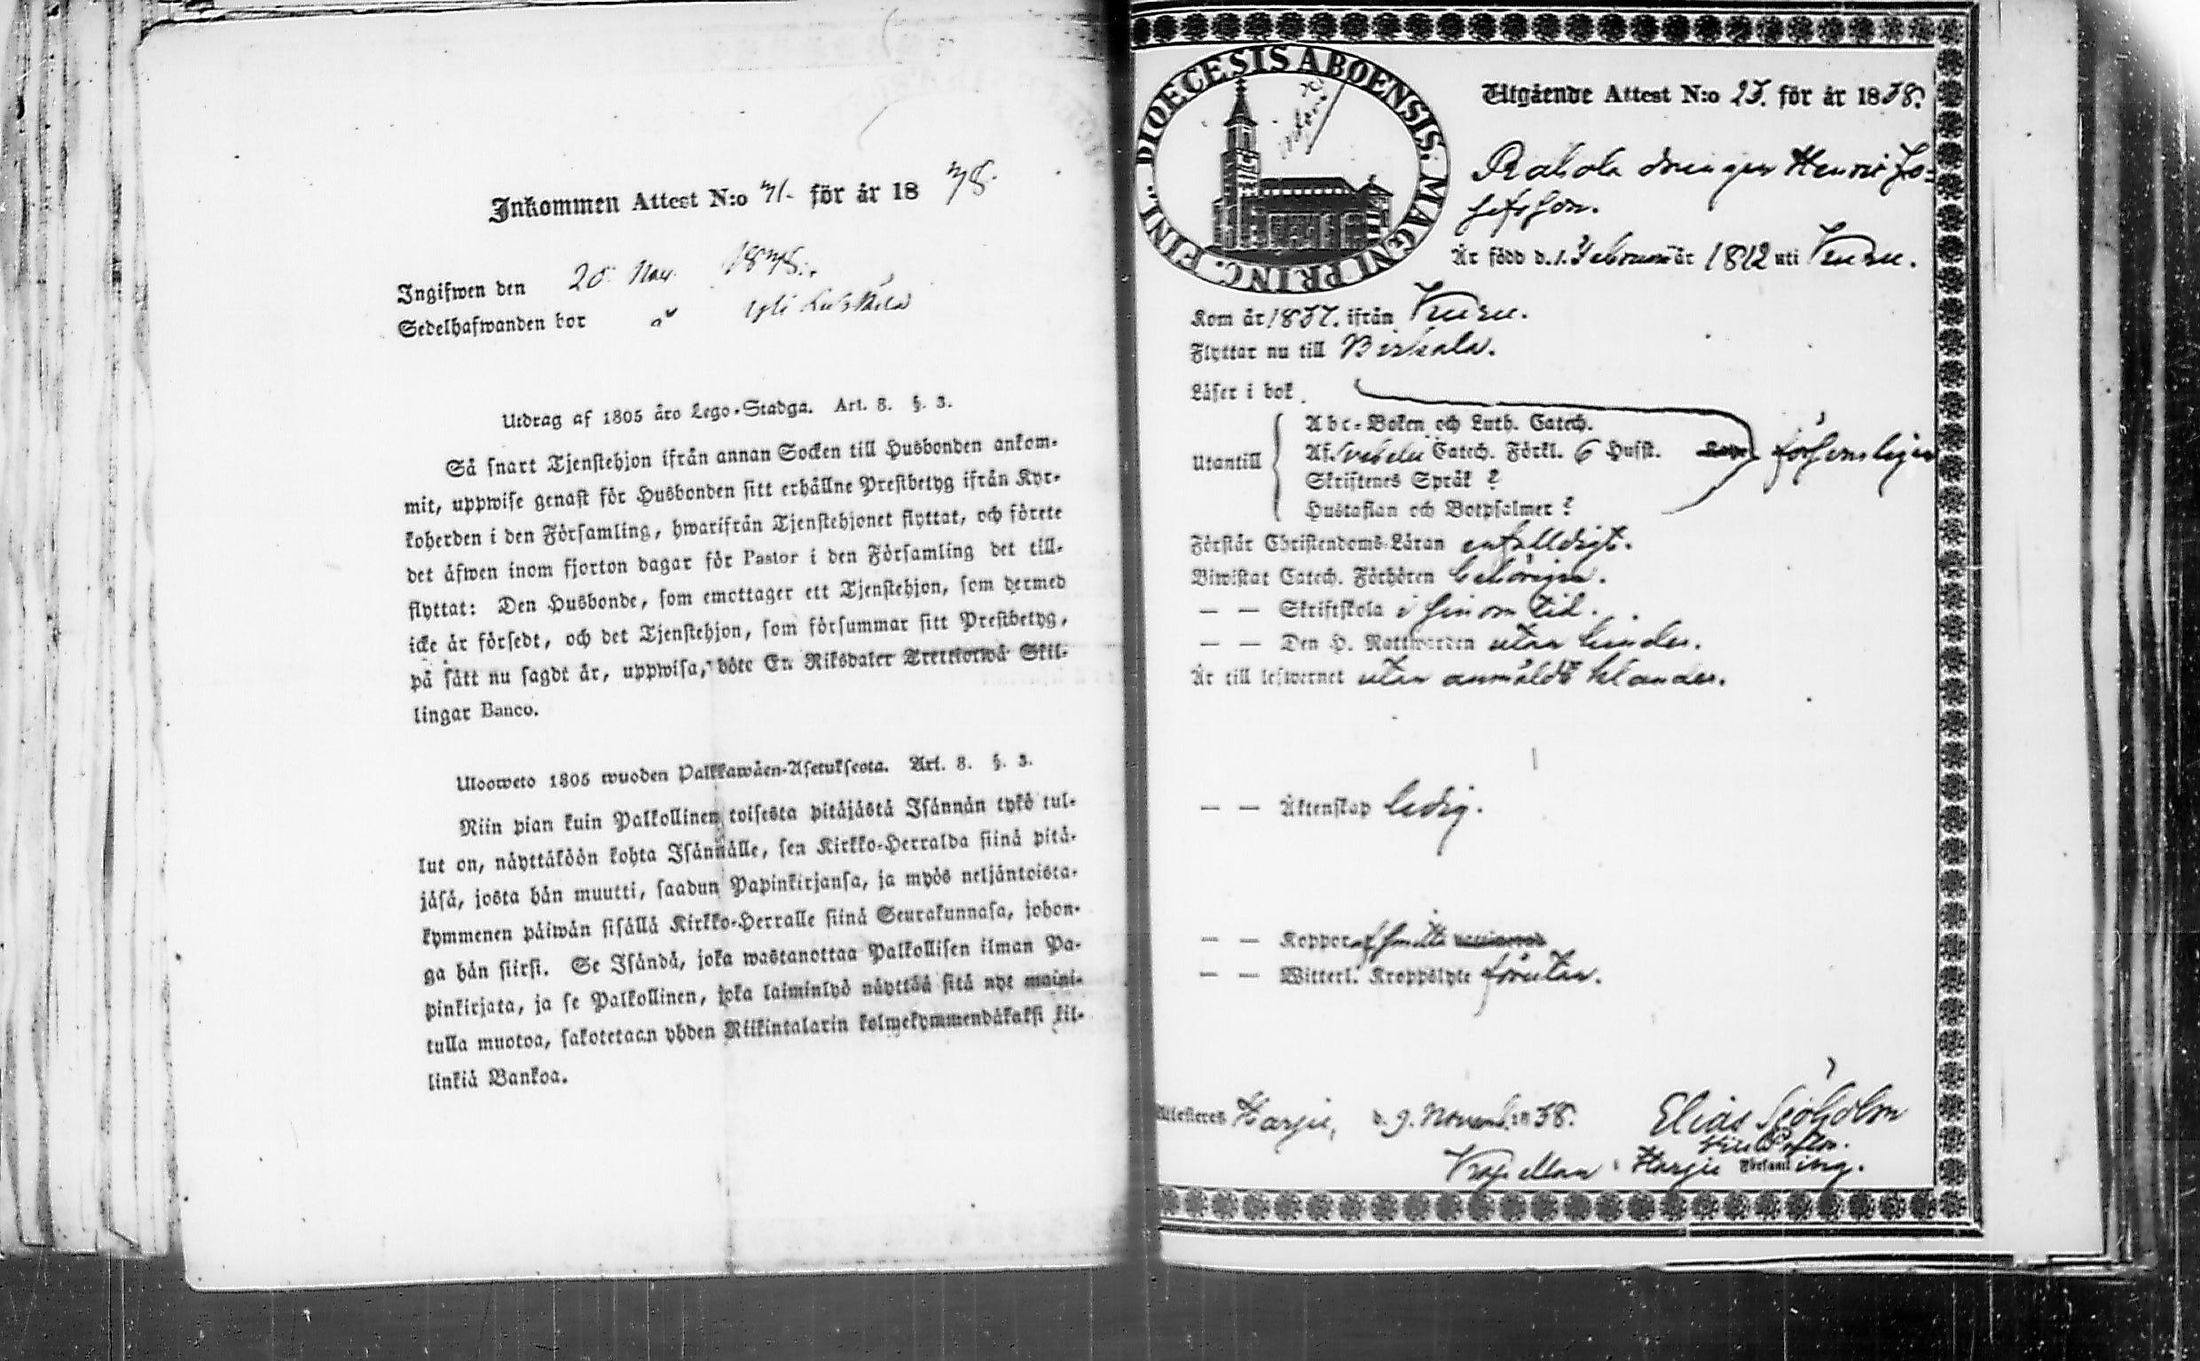 Inkommen Attest N:o 71. för år 1838.
Ingifwen den 20 Nov. 1838.
Sedelhafwanden bor
Utdrag af 1805 åro Lego-Stadga. Art. 8. §. 3.
Så snart Tjenstehjon ifrån annan Socken till Husbonden ankom-
mit, uppwise genast för Husbonden sitt erhållne Prestbetyg ifrån Kyr-
koherden i den Församling, hwarifrån Tjenstehjonet flyttat, och förete
det äfwen inom fjorton dagar för Pastor i den Församling det till-
flyttat: Den Husbonde, som emottager ett Tjenstehjon, som dermed
icke är försedt, och det Tjenstehjon, som försummar sitt Prestbetyg,
på sått nu sagdt är, uppwisa, böte En Riksdaler Trettiotwå Skil-
lingar Banco.
Uloosweto 1805 wuoden Palkkawäen-Asetuksesta. Art. 8. §. 3.
Niin pian kuin Palkollinen toisesta pitäjästä Isännän tykö tul-
lut on, näyttäköön kohta Isännälle, sen Kirkko-Herralda siinä pitä-
jäsä, josta hän muutti, saadun Papinkirjansa, ja myös neljäntoista-
kymmenen päiwän sisällä Kirkko-Herralle siinä Seurakunnasa, johon-
ga hän siirsi. Se Isändä, joka wastanottaa Palkollisen ilman Pa-
pinkirjata, ja se Palkollinen, joka laiminlyö näyttää sitä nyt maini-
tulla muotoa, sakotetaan yhden Riikintalarin kolmekymmendäkaksi kil-
linkiä Bankoa.
DIOECESIS ABOENSIS. MAGNI PRINC. FINL.
Utgående Attest N:o 23. för år 1838.
drengen Henric Jo-
sefsson.
Är född d. 1. Februari år 1812 uti Kuru.
Kom år 1837. ifrån Kuru.
Flyttar nu till Birkala.
Läser i bok
Abc-Boken och Luth. Catech.
Utantill Af. Svebelii Catech. Förkl. 6 Husst. försvarligen
Skriftenes Språk ?
Hustaflan och Botpsalmer ?
Förstår Christendoms-Läran enfalldigt.
Biwistat Catech. Förhören behörigen.
— — Skriftskola i sinom tid.
— — Den H. Nattwarden utan hinder.
Är till lefwernet utan anmäldt klander.
— — Äktenskap ledig.
— — Koppor af Smitta
— — Witterl. Kroppslyte förutan.
Attesteres Harju, d. 9. Novemb. 1838. Elias Sjöholm
Kapellan i Harju Församling.